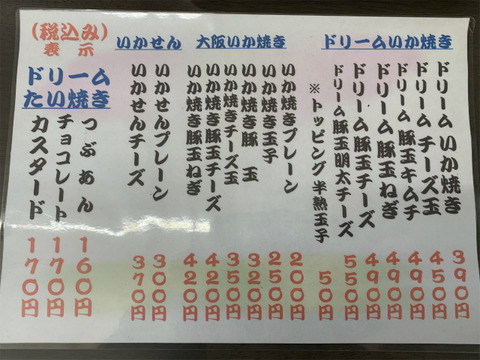 ドリームいか焼き
ドリームいか焼き 390円
ドリームチーズ玉 450円
ドリーム豚玉キムチ 490円
ドリーム豚玉ねぎ 490円
ドリーム豚玉チーズ 490円
ドリーム豚玉明太チーズ 550円
※トッピング半熟玉子 50円
大阪いか焼き
いか焼きプレーン 200円
いか焼き玉子 250円
いか焼き豚玉 320円
いか焼きチーズ玉 350円
いか焼き豚玉チーズ玉 420円
いか焼き豚玉ねぎ 420円
いかせん
いかせんプレーン 300円
いかせんチーズ 370円
(税込み)
表示
ドリーム
たい焼き
つぶあん 160円
チョコレート 170円
カスタード 170円